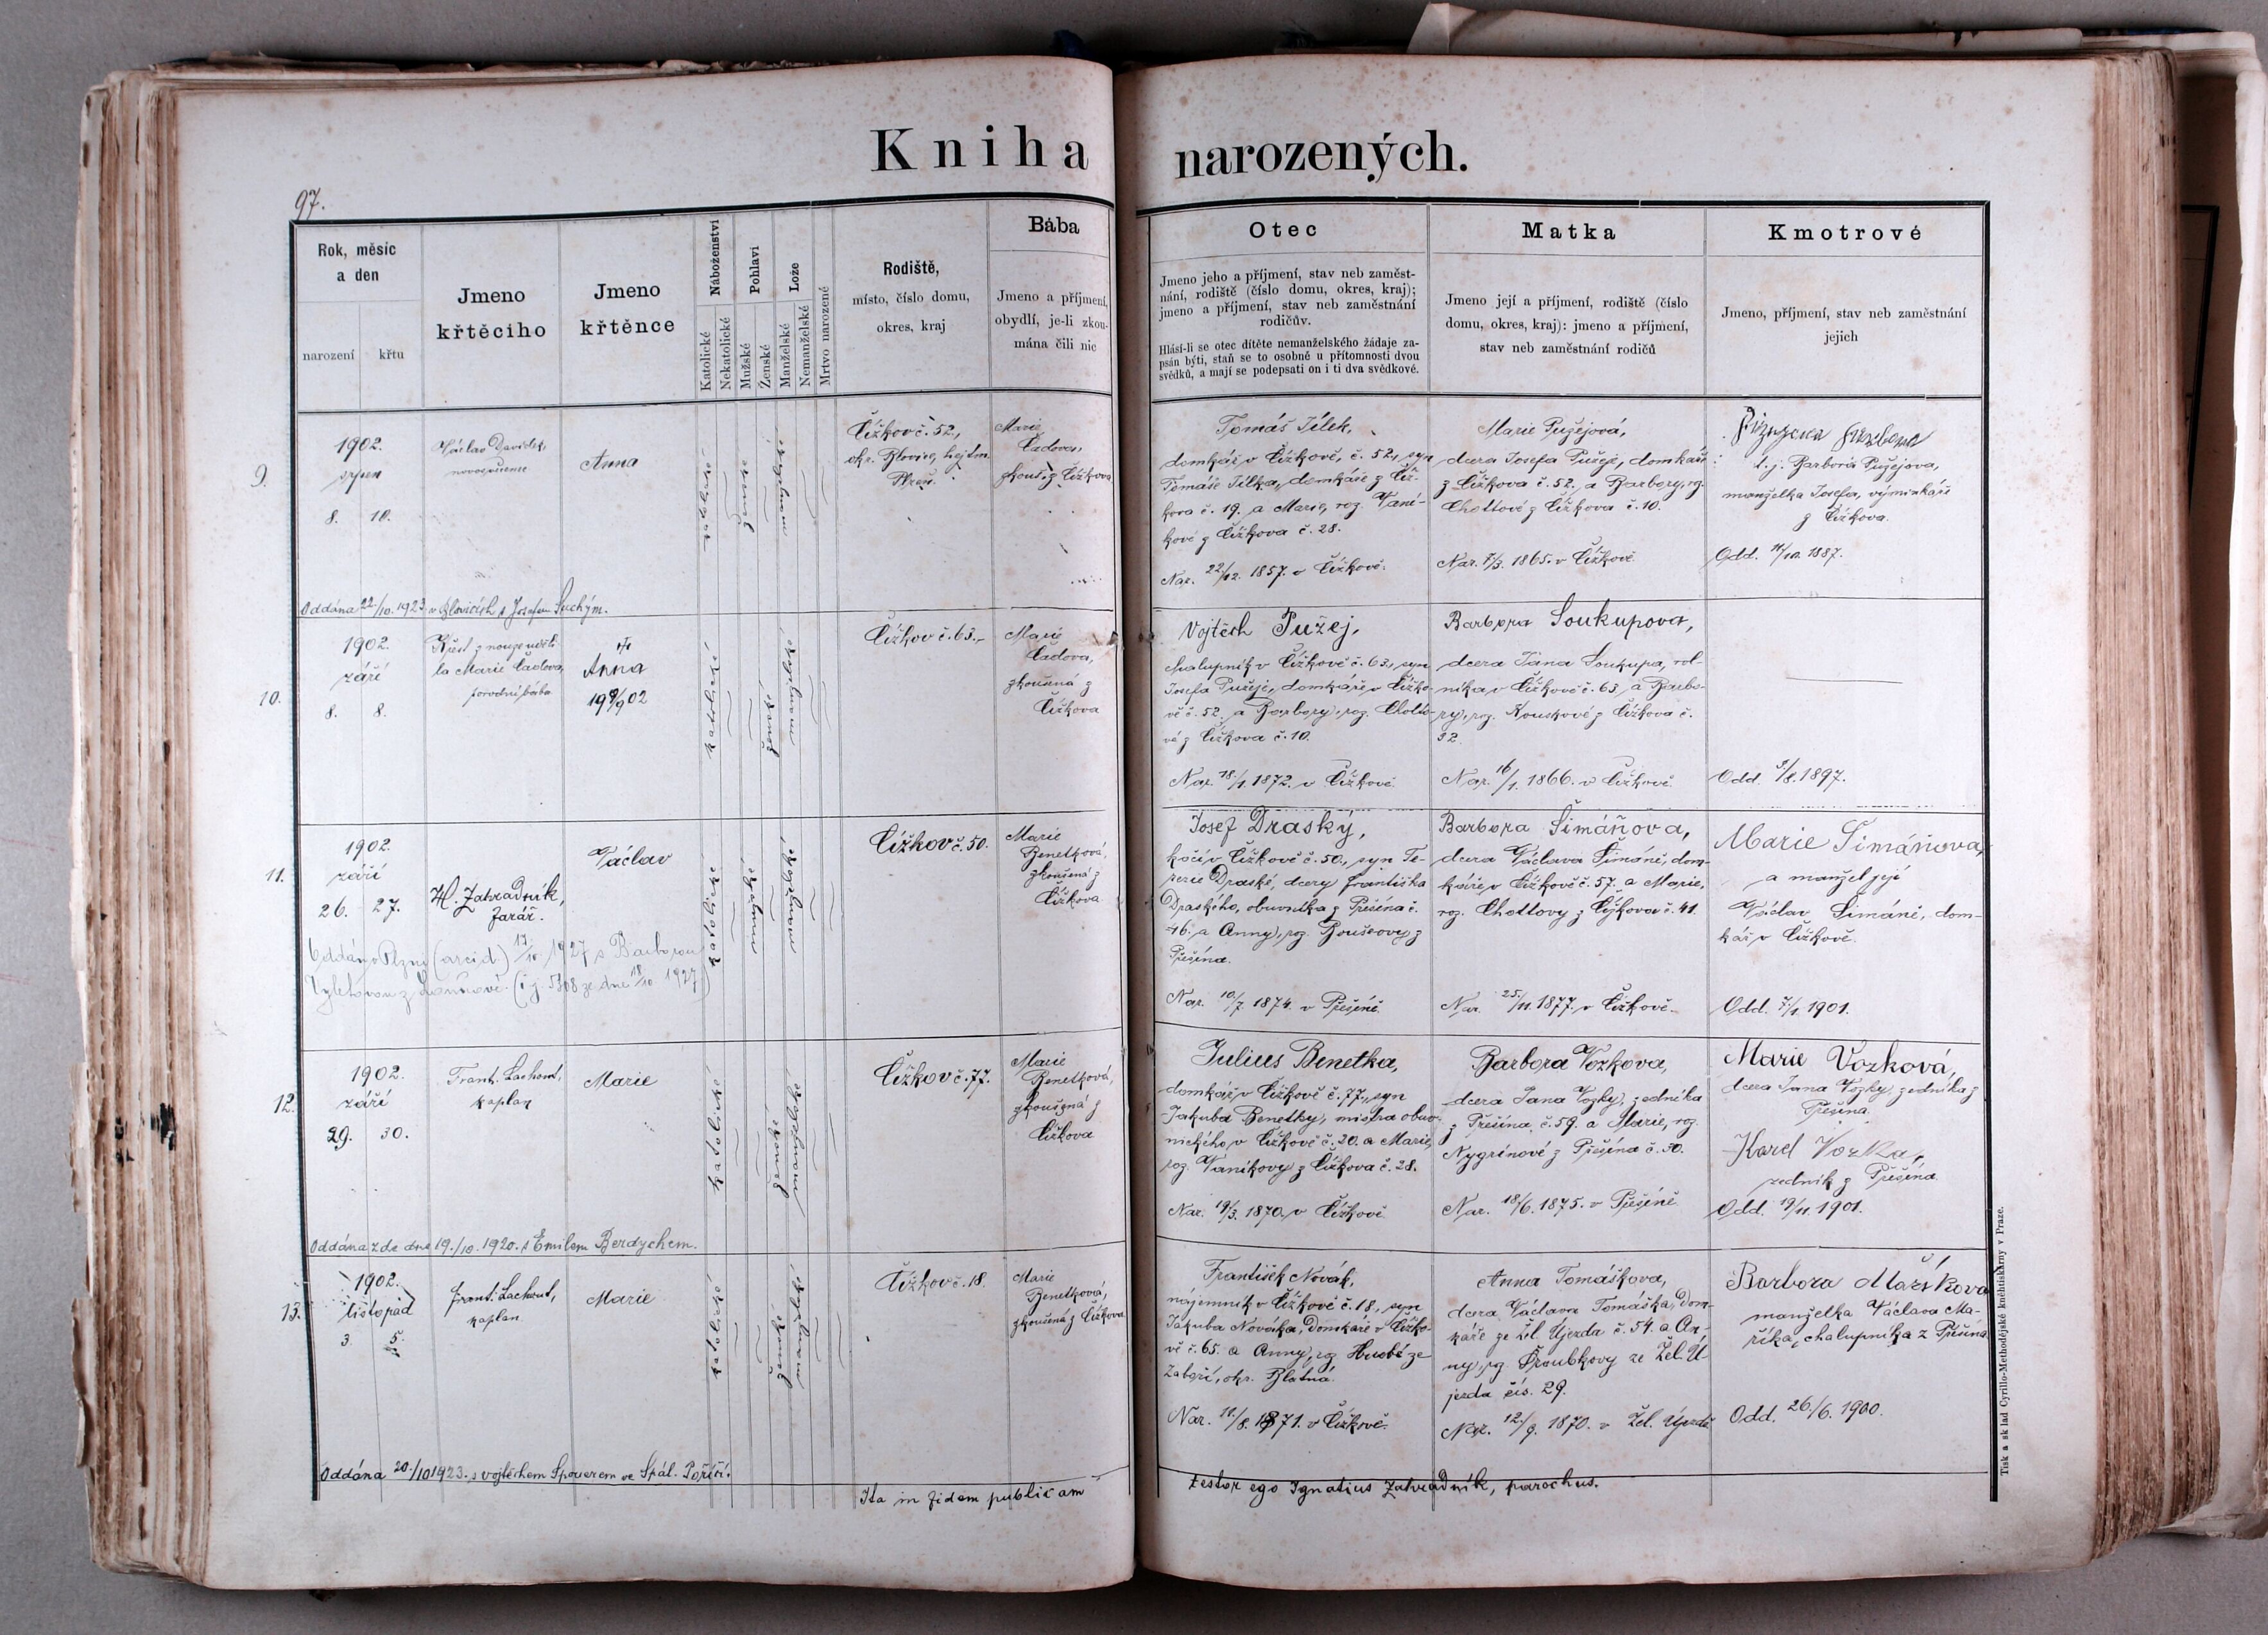 Kniha narozených.
97.
Rok, měsíc
a den
narození
křtu
Jmeno
křtěcího
Jmeno
křtěnce
Náboženství
Katolické
Nekatolické
Pohlaví
Mužské
Ženské
Lože
Manželské
Nemanželské
Mrtvo narozené
Rodiště,
místo, číslo domu,
okres, kraj
Bába
Jmeno a příjmení,
obydlí, je-li zkou-
mána čili nic
Otec
Jmeno jeho a příjmení, stav neb zaměst-
nání, rodiště (číslo domu, okres, kraj);
jmeno a příjmení, stav neb zaměstnání
rodičův.
Hlásí-li se otec dítěte nemanželského žádaje za-
psán býti, staň se to osobně u přítomnosti dvou
svědků, a mají se podepsati on i ti dva svědkové.
Matka
Jmeno její a příjmení, rodiště (číslo
domu, okres, kraj): jmeno a příjmení,
stav neb zaměstnání rodičů
Kmotrové
Jmeno, příjmení, stav neb zaměstnání
jejich
9.
1902.
srpen
8. 10.
Václav Davídek,
Anna
katolické
ženské
manželské
Čížkov č. 52,
okr. Blovice, hejtm.
Plzeň.
Marie
Čadova,
zkouš. z Čížkova
Tomáš Jílek,
domkář v Čížkově, č. 52, syn
Tomáše Jílka, domkáře z Číž-
kova č. 19. a Marie, roz. Vaní-
kové z Čížkova č. 28.
Nar. 22/12. 1857. v Čížkově.
Marie Pužejová,
dcera Josefa Pužeje, domkáře
z Čížkova č. 52. a Barbory, roz.
Chottové z Čížkova č. 10.
Nar. 7/3. 1865. v Čížkově
t. j. Barbora Pužejova,
manželka Josefa, výminkáře
z Čížkova.
Odd. 11/10. 1887.
Oddána 22/10. 1923 v Blovicích s Josefem Suchým.
10.
1902.
září
8. 8.
Křest z nouze uděli-
la Marie Čadova,
porodní bába
Anna
19 9/9 02
katolické
ženské
manželské
Čížkov č. 63.
Marie
Čadova,
zkoušená z
Čížkova
Vojtěch Pužej,
chalupník v Čížkově č. 63, syn
Josefa Pužeje, domkáře v Čížko-
vě č. 52. a Barbory, roz. Chotto-
vé z Čížkova č. 10.
Nar. 18/1. 1872. v Čížkově
Barbora Soukupova,
dcera Jana Soukupa, rol-
níka v Čížkově č. 63, a Barbo-
ry, roz. Kouskové z Čížkova č.
32.
Nar. 16/1. 1866. v Čížkově
Odd. 3/8. 1897.
11.
1902.
září
26. 27.
H. Zahradník,
farář.
Václav
katolické
mužské
manželské
Čížkov č. 50.
Marie
Benetková,
zkoušená z
Čížkova
Josef Draský,
kočí v Čížkově č. 50, syn Te-
rezie Draské, dcery Františka
Draského, obuvníka z Přešína č.
46. a Anny, roz. Boušovy z
Přešína.
Nar. 10/7. 1874. v Přešíně
Barbora Šimáňova,
dcera Václava Šimáně, dom-
káře v Čížkově č. 57. a Marie,
roz. Chottovy z Čížkova č. 41.
Nar. 25/11. 1877. v Čížkově.
Marie Šimáňova,
a manžel její
Václav Šimáně, dom-
kář v Čížkově.
Odd. 7/1. 1901.
Oddán v Plzni (arcid.) 17/10. 1927 s Barborou
(č. j. 5308 ze dne 18/10 1927)
12.
1902.
září
29. 30.
Frant. Lachout,
kaplan
Marie
katolické
ženské
manželské
Čížkov č. 77.
Marie
Benetková,
zkoušená z
Čížkova
Julius Benetka,
domkář v Čížkově č. 77, syn
Jakuba Benetky, mistra obuv-
nického v Čížkově č. 20. a Marie,
roz. Vaníkovy z Čížkova č. 28.
Nar. 19/3. 1870. v Čížkově
Barbora Vozkova,
dcera Jana Vozky, zedníka
z Přešína č. 59. a Marie, roz.
Nygrínové z Přešína č. 30.
Nar. 18/6. 1875. v Přešíně
Marie Vozková,
dcera Jana Vozky, zedníka z
Přešína.
Karel Vozka,
zedník z Přešína
Odd. 19/11. 1901.
Oddána zde dne 19./10. 1920. s Emilem Berdychem.
13.
1902.
listopad
3 5.
Frant. Lachout,
kaplan
Marie
katolické
ženské
manželské
Čížkov č. 18.
Marie
Benetková,
zkoušená z Čížkova
František Novák,
nájemník v Čížkově č. 18, syn
Jakuba Nováka, domkáře v Čížko-
vě č. 65. a Anny, roz. Husbé ze
Záboří, okr. Blatná.
Nar. 21./8. 1871. v Čížkově.
Anna Tomáškova,
dcera Václava Tomáška, dom-
káře ze Žel. Újezda č. 54. a An-
ny, roz. Šroubkovy ze Žel. Ú-
jezda čís. 29.
Nar. 12./9. 1870. v Žel. Újezdě
Barbora Maříkova
manželka Václava Ma-
říka, chalupníka z Přešína
Odd. 26./6. 1900.
Oddána 20./10 1923. s Vojtěchem Spourem ve Spál. Poříčí.
Ita in fidem publicam testor ego Ignatius Zahradník, parochus.
Tisk a sklad Cyrillo-Methodějské knihtiskárny v Praze.